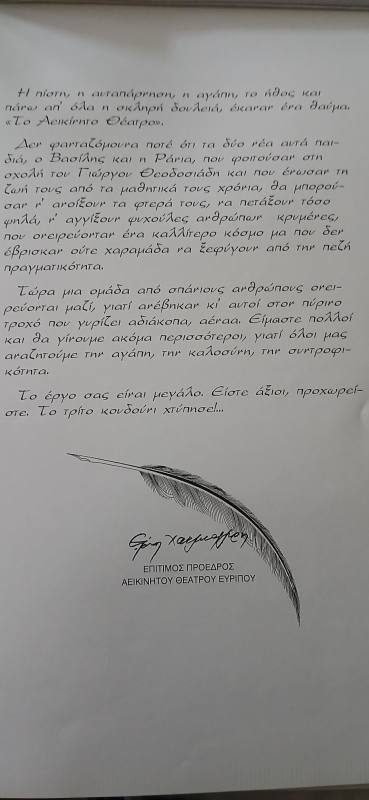 Η πίστη, η αυταπάρνηση, η αγάπη, το ήθος και
πάνω απ' όλα η σκληρή δουλειά, έκαναν ένα θαύμα.
«Το Αεικίνητο Θέατρο».
Δεν φανταζόμουνα ποτέ ότι τα δύο νέα αυτά παι-
διά, ο Βασίλης και η Ράνια, που φοιτούσαν στη
σχολή του Γιώργου Θεοδοσιάδη και που ένωσαν τη
ζωή τους από τα μαθητικά τους χρόνια, θα μπορού-
σαν ν' ανοίξουν τα φτερά τους, να πετάξουν τόσο
ψηλά, ν' αγγίξουν ψυχούλες ανθρώπων κρυμένες,
που ονειρεύονταν ένα καλλίτερο κόσμο μα που δεν
έβρισκαν ούτε χαραμάδα να ξεφύγουν από την πεζή
πραγματικότητα.
Τώρα μια ομάδα από σπάνιους ανθρώπους ονει-
ρεύονται μαζί, γιατί ανέβηκαν κι' αυτοί στον πύρινο
τροχό που γυρίζει αδιάκοπα, αέναα. Είμαστε πολλοί
και θα γίνουμε ακόμα περισσότεροι, γιατί όλοι μας
αναζητούμε την αγάπη, την καλοσύνη, την συντροφι-
κότητα.
Το έργο σας είναι μεγάλο. Είστε άξιοι, προχωρεί-
στε. Το τρίτο κουδούνι χτύπησε!...
ΕΠΙΤΙΜΟΣ ΠΡΟΕΔΡΟΣ
ΑΕΙΚΙΝΗΤΟΥ ΘΕΑΤΡΟΥ ΕΥΡΙΠΟΥ